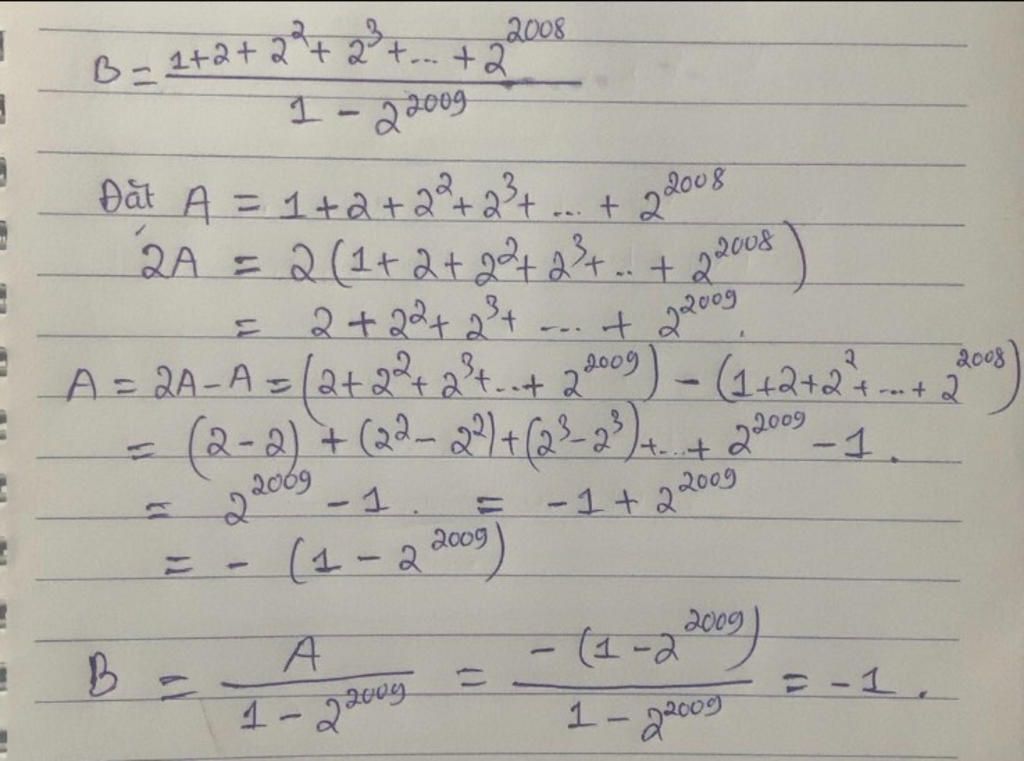 B = (1+2+2²+2³+...+2²⁰⁰⁸)/(1-2²⁰⁰⁹)
Đặt A = 1+2+2²+2³+...+2²⁰⁰⁸
2A = 2(1+2+2²+2³+..+2²⁰⁰⁸)
= 2+2²+2³+....+2²⁰⁰⁹.
A = 2A-A = (2+2²+2³+..+2²⁰⁰⁹) - (1+2+2²+...+2²⁰⁰⁸)
= (2-2)+(2²-2²)+(2³-2³)+...+2²⁰⁰⁹-1.
= 2²⁰⁰⁹-1. = -1+2²⁰⁰⁹
= -(1-2²⁰⁰⁹)
B = A/(1-2²⁰⁰⁹) = -(1-2²⁰⁰⁹)/(1-2²⁰⁰⁹) = -1.